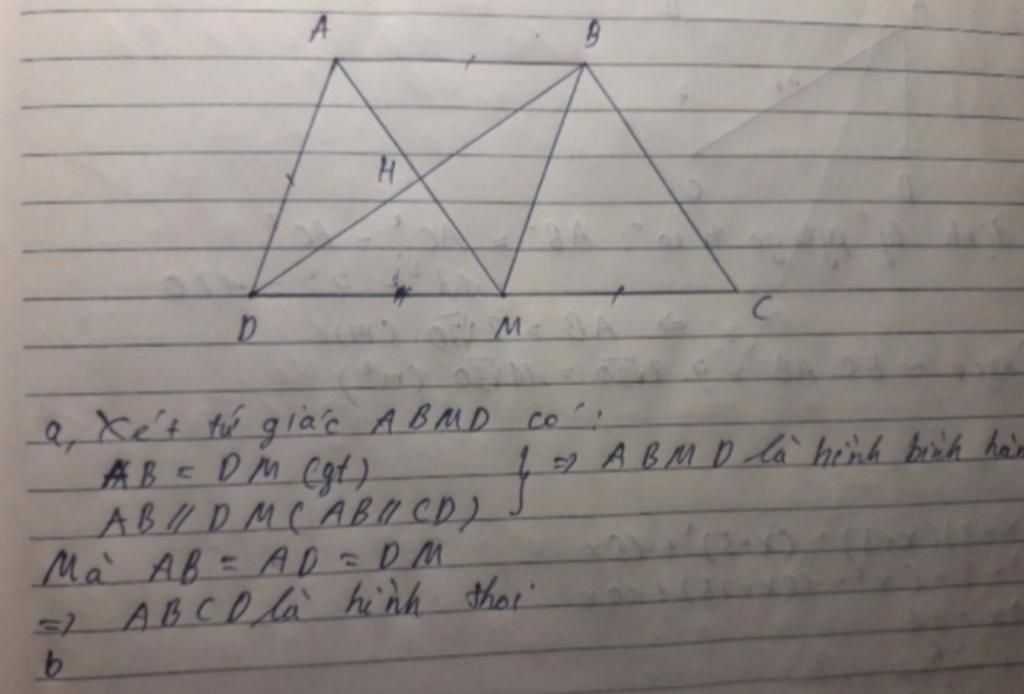 A B
H
D M C
a, Xét tứ giác ABMD có:
AB = DM (gt)
AB // DM (AB // CD) } => ABMD là hình bình hàn
Mà AB = AD = DM
=> ABCD là hình thoi
b